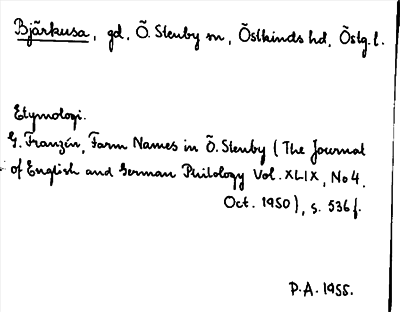 Bjärkusa, gd, Ö. Stenby sn, Östkinds hd, Östg. l.
Etymologi.
G. Franzén, Farm Names in Ö. Stenby (The Journal
of English and German Philology Vol. XLIX, No 4.
Oct. 1950), s. 536 f.
P.A. 1955.